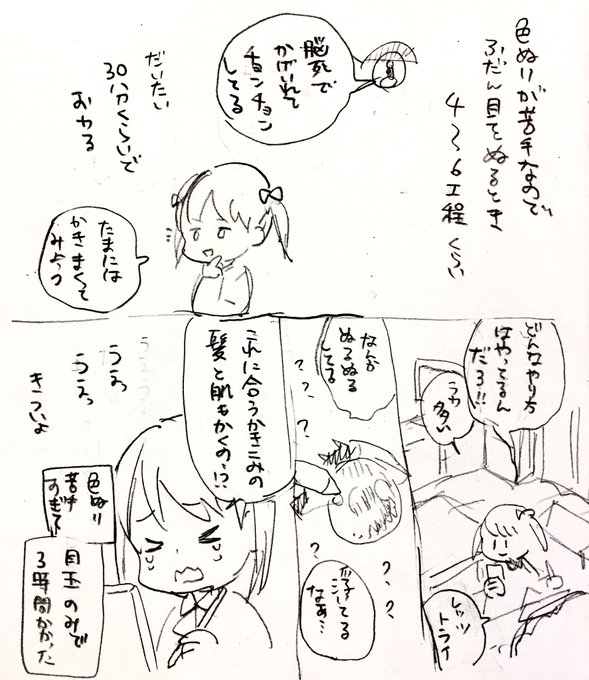 色ぬりが苦手なので
ふだん目をぬるとき
4〜6工程くらい
脳死で
かげいれて
チョンチョン
してる
だいたい
30分くらいで
おわる
たまには
かきまくて
みよう
どんなやり方
はやってるん
だろ!!
うわ
多い
レッツ
トライ
なんか
ぬるぬる
してる
?
?
?
?
?
?
?
なぁ…
これに合うかきこみの
髪と肌もかくの…!?
うぇっ
うぇっ
きついよ
色ぬり
苦手
すぎて
目玉のみで
3時間かかった